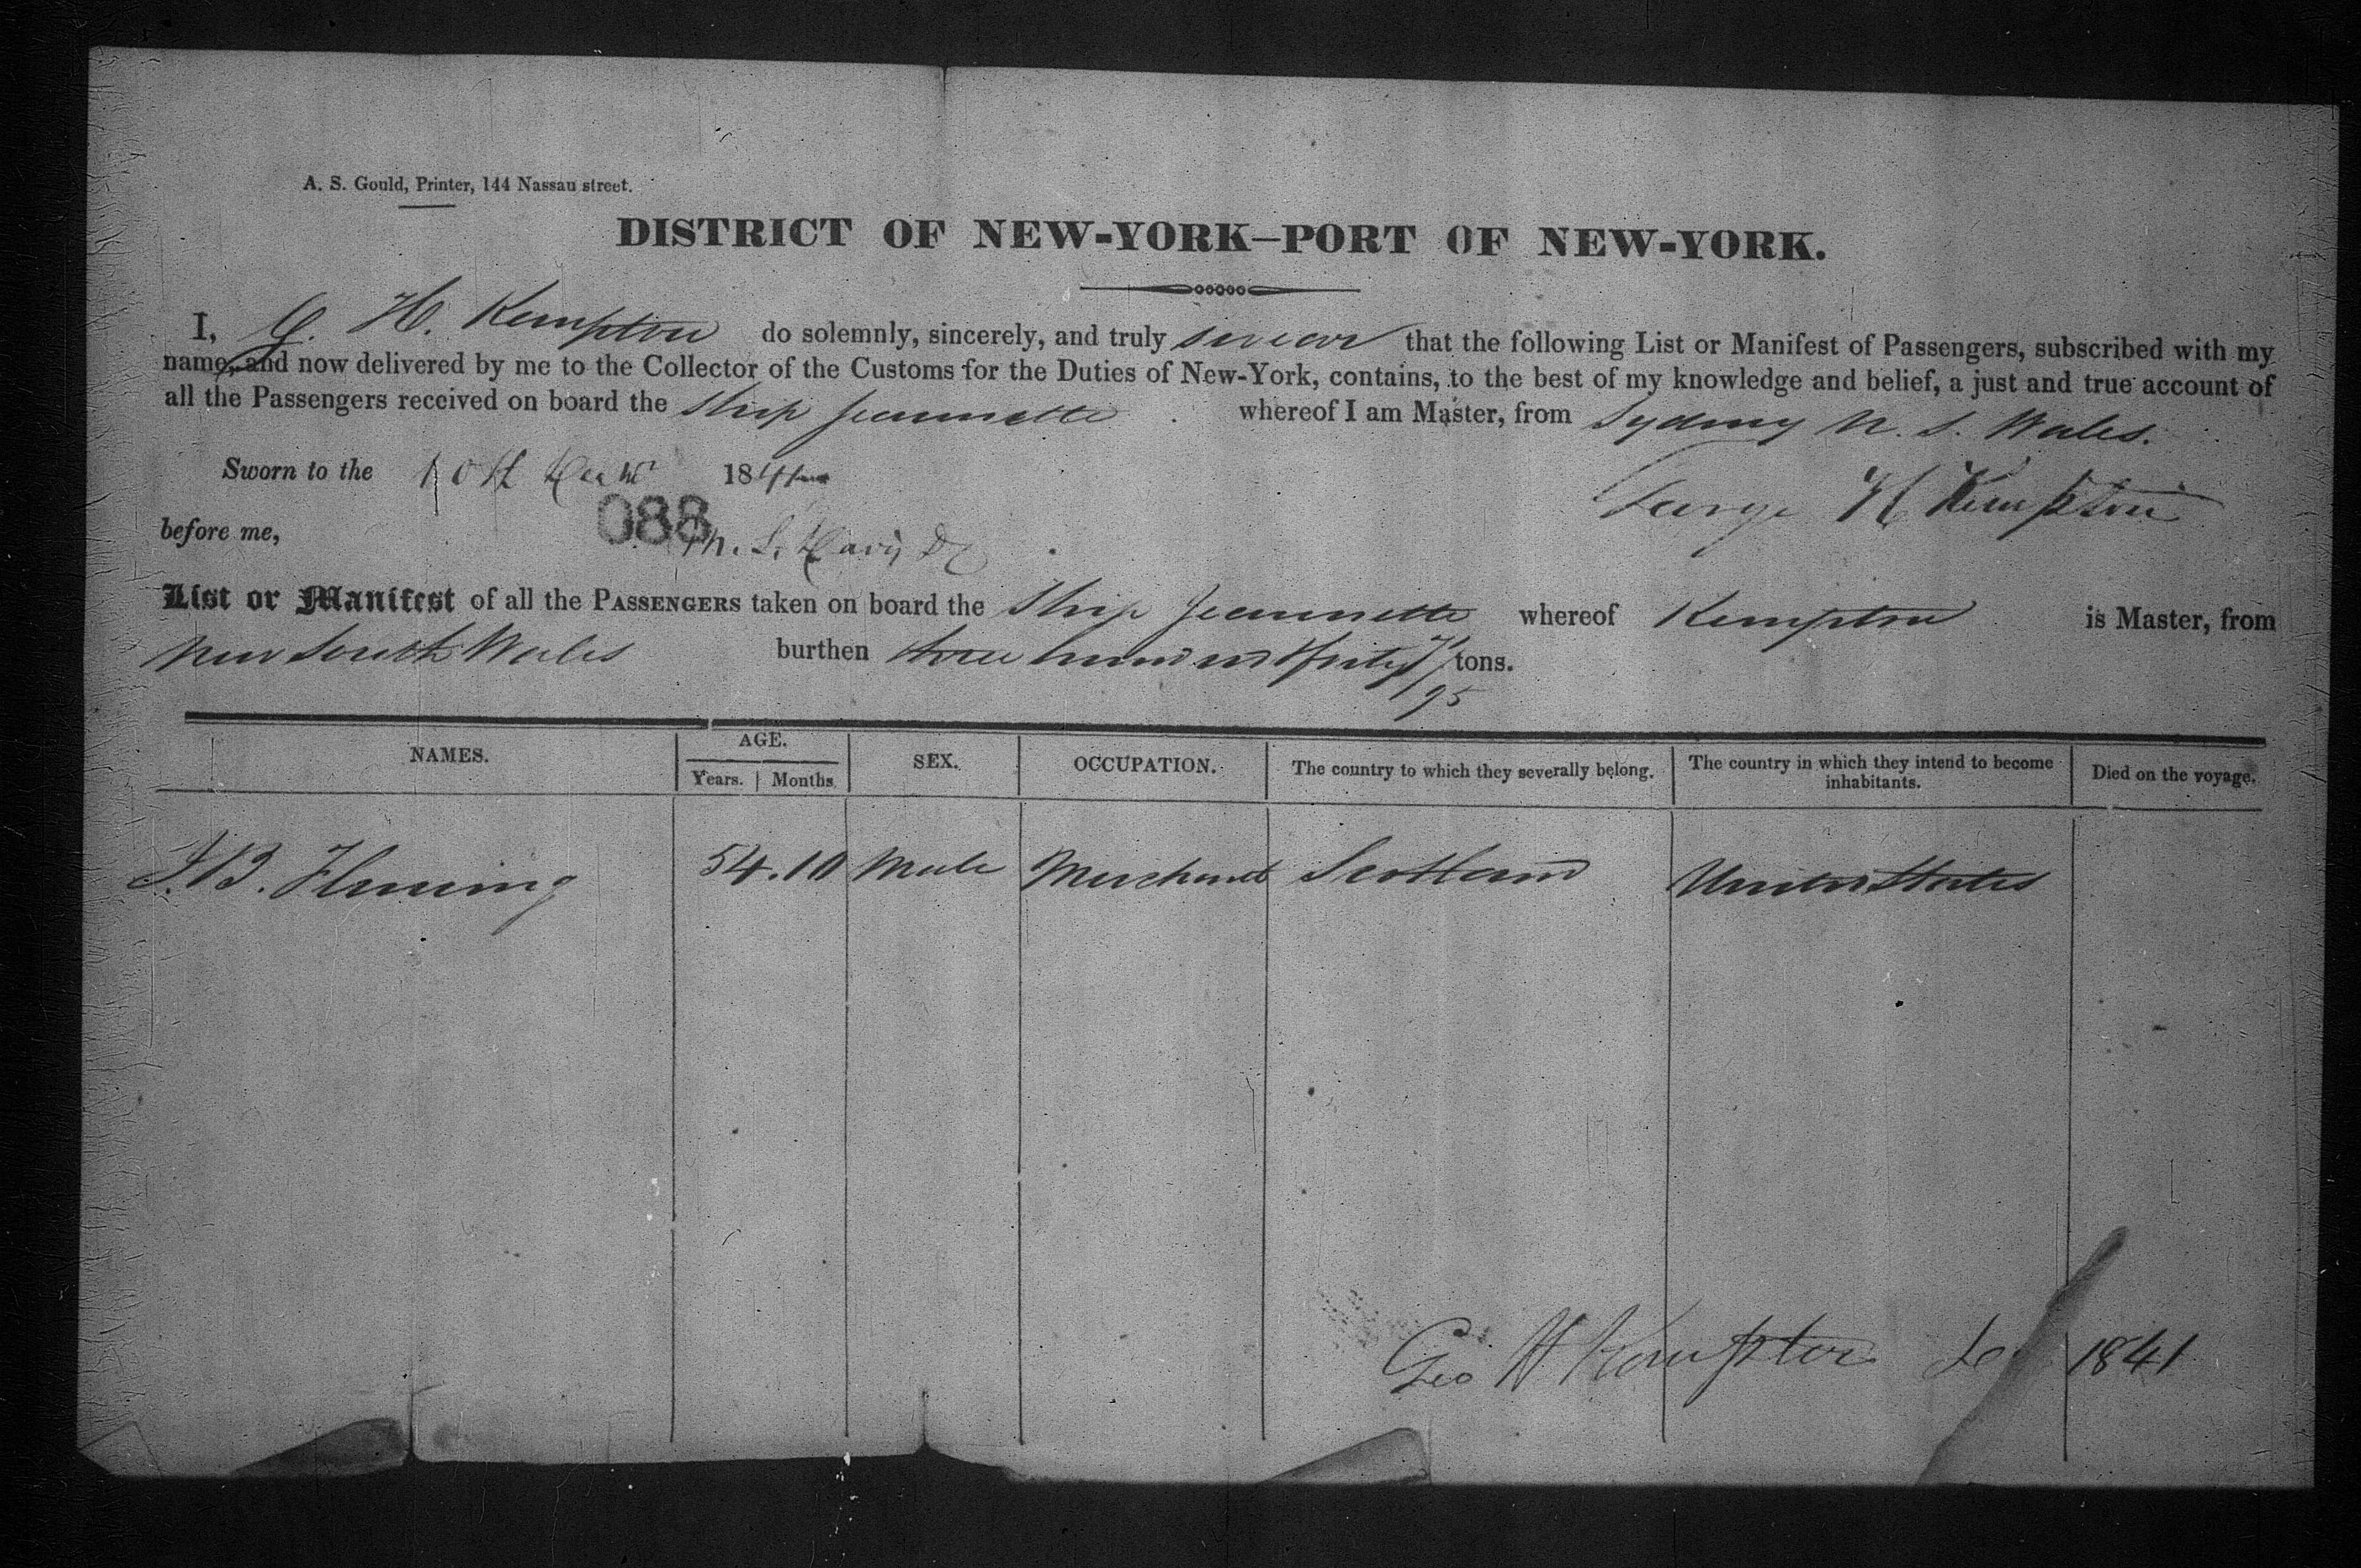 A. S. Gould, Printer, 144 Nassau street.
DISTRICT OF NEW-YORK—PORT OF NEW-YORK.
I, G. H. Kempton do solemnly, sincerely, and truly swear that the following List or Manifest of Passengers, subscribed with my
name, and now delivered by me to the Collector of the Customs for the Duties of New-York, contains, to the best of my knowledge and belief, a just and true account of
all the Passengers received on board the Ship Jeannette whereof I am Master, from Sydney N. S. Wales.
Sworn to the 10th 1841 George H Kempton
088
before me, M. L. Davis
List or Manifest of all the PASSENGERS taken on board the Ship Jeannette whereof Kempton is Master, from
New South Wales burthen three hundred tons.
95
NAMES. AGE. SEX. OCCUPATION. The country to which they severally belong. The country in which they intend to become inhabitants. Died on the voyage.
Years. Months
J. B. Fleming 54.10 Male Merchant Scotland United States
Geo H Kempton 1841